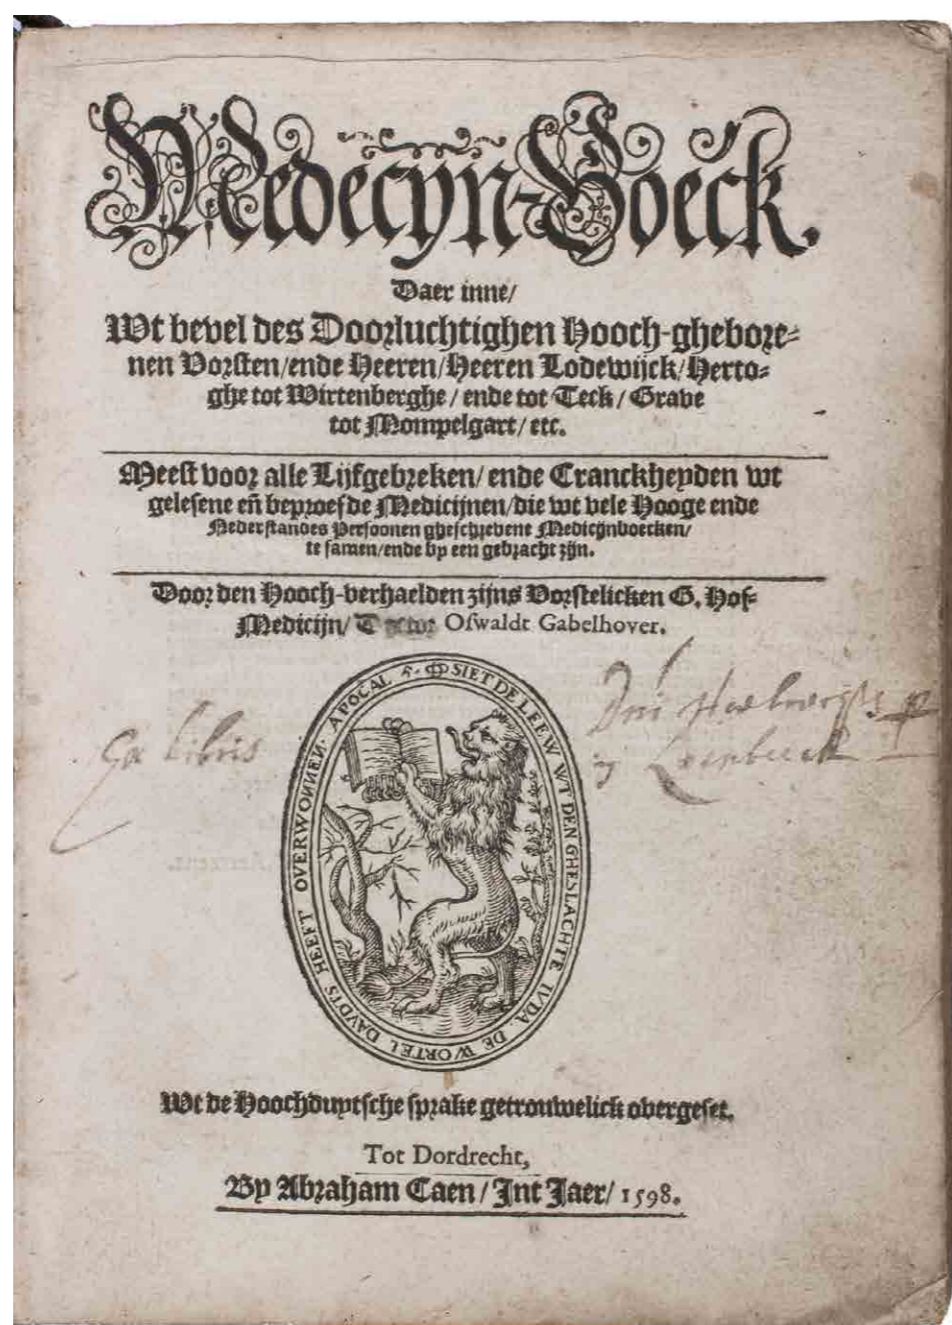 Medecijn-Boeck.
Daer inne/
Wt bevel des Doorluchtighen Hooch-ghebore-
nen Vorsten/ende Heeren/Heeren Lodewijck/Herto-
ghe tot Wirtenberghe/ ende tot Teck/ Grave
tot Mompelgart/ etc.
Meest voor alle Lijfgebreken/ ende Cranckheyden wt
gelesene eñ beproefde Medicijnen/die wt vele Hooge ende
Nederstandes Persoonen gheschrevene Medicijnboecken/
te samen/ende by een gebracht zijn.
Door den Hooch-verhaelden zijns Vorstelicken G. Hof-
Medicijn/ Oſwaldt Gabelhover.
SIET DE LEEW WT DEN GHESLACHTE IVDA DE WORTEL DAVIDTS HEEFT OVERWONNEN. APOCAL
Ex libris
Wt de Hoochduytsche sprake getrouwelick overgeset.
Tot Dordrecht,
By Abraham Caen/ Int Jaer/ 1598.